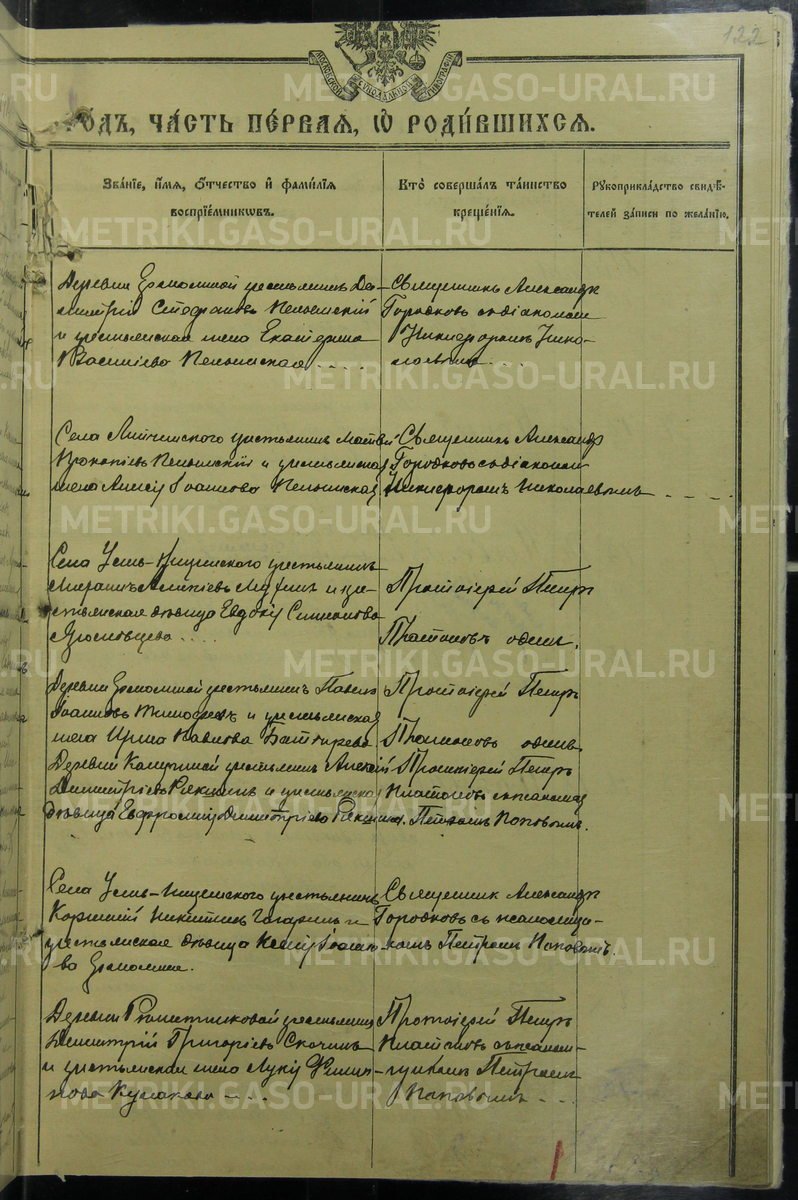 122
МОСКОВСКОЙ СѴНОДАЛЬНОЙ ТИПОГРАФІИ
го́дъ, ча́сть пе́рвая, ѡ роди́вшихся.
Зва́нїе, и́мя, ѻ́тчество и҆ фами́лїя
воспрїе́мникѡвъ.
Кто̀ соверша́лъ та́инство
креще́нїя.
Рꙋкоприкла́дство свидѣ́-
телей за́писи по жела́нїю.
Деревни Ермолиной крестьянинъ Ди-
митрій Стефановъ Пелымскій
и крестьянская жена Екатерина
Васильева Пелымская
Священникъ Александръ
Городковъ съ діакономъ
Никифоромъ Нико-
лаевымъ
Села крестьянинъ Матвѣй
Прокопіевъ Пелымскій и крестьянская
жена Анисія Іоаннова Пелымская
Священникъ Александръ
Городковъ съ діакономъ
Никифоромъ Николаевымъ
Села Усть-Ницинскаго крестьянинъ
и кре-
стьянская дѣвица Евдокія Симеонова
Протоіерей Петръ
Платоновъ одинъ.
Деревни Ермолиной крестьянинъ Павелъ
Іоанновъ Тимофеевъ и крестьянская
жена Ирина Павлова
Протоіерей Петръ
Платоновъ одинъ.
Деревни крестьянинъ Алексій
Димитріевъ Рякшинъ и крестьянская
дѣвица Евфросинія Димитріева
Протоіерей Петръ
Платоновъ съ псаломщ.
Петромъ Поповымъ.
Села Усть-Ницинскаго крестьянинъ
Корнилій Никитинъ Гагаринъ и
крестьянская дѣвица Ксенія Іоанно-
ва Ермолина.
Священникъ Александръ
Городковъ съ псаломщи-
комъ Петромъ Поповымъ.
Деревни крестьянинъ
Димитрій Григоріевъ Скочинъ
и крестьянская жена Лукія Филип-
пова Кулакова
Протоіерей Петръ
Платоновъ съ псалом-
щикомъ Петромъ
Поповымъ
METRIKI.GASO-URAL.RU